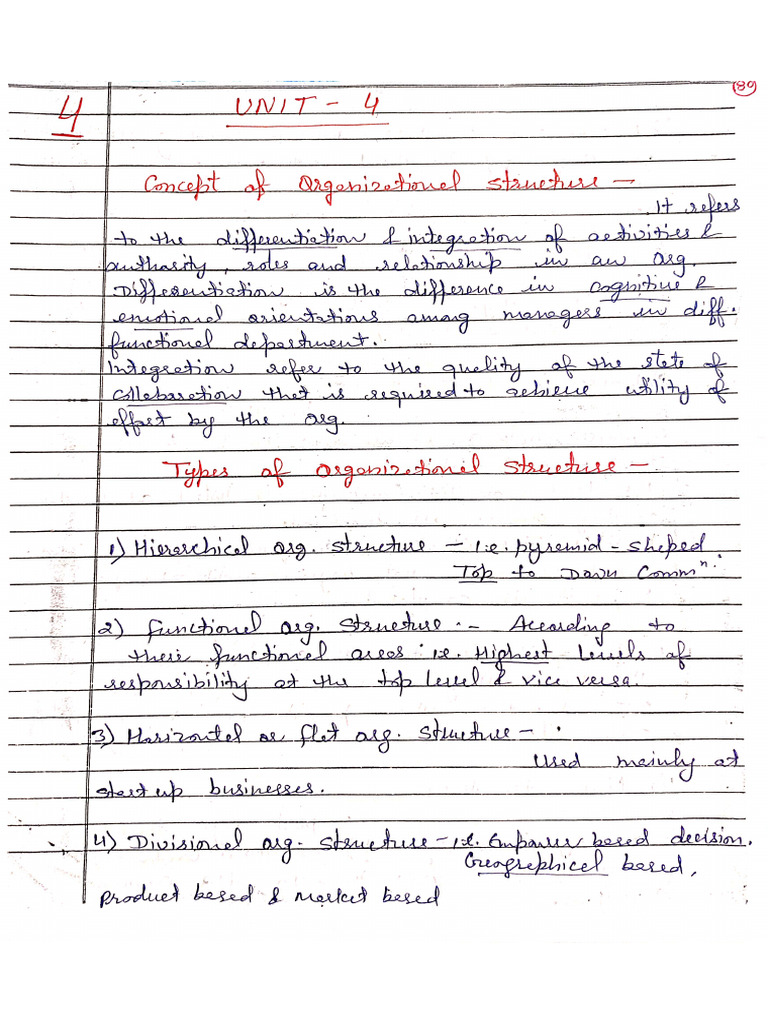 189
4 UNIT - 4
Concept of Organizational structure -
It refers
to the differentiation & integration of activities &
authority, roles and relationship in an org.
Differentiation is the difference in cognitive &
emotional orientations among managers in diff.
functional department.
Integration refer to the quality of the state of
collabaration that is required to achieve utility of
effort by the org.
Types of organizational structure -
1) Hierarchical org. structure - i.e. pyramid - shaped
Top to Down Commⁿ.
2) Functional org. structure :- According to
their functional areas i.e. Highest levels of
responsibility at the top level & vice versa.
3) Horizontal or flat org. structure -
Used mainly at
start up businesses.
4) Divisional org. structure - i.e. Empower based decision.
Geographical based,
product based & market based